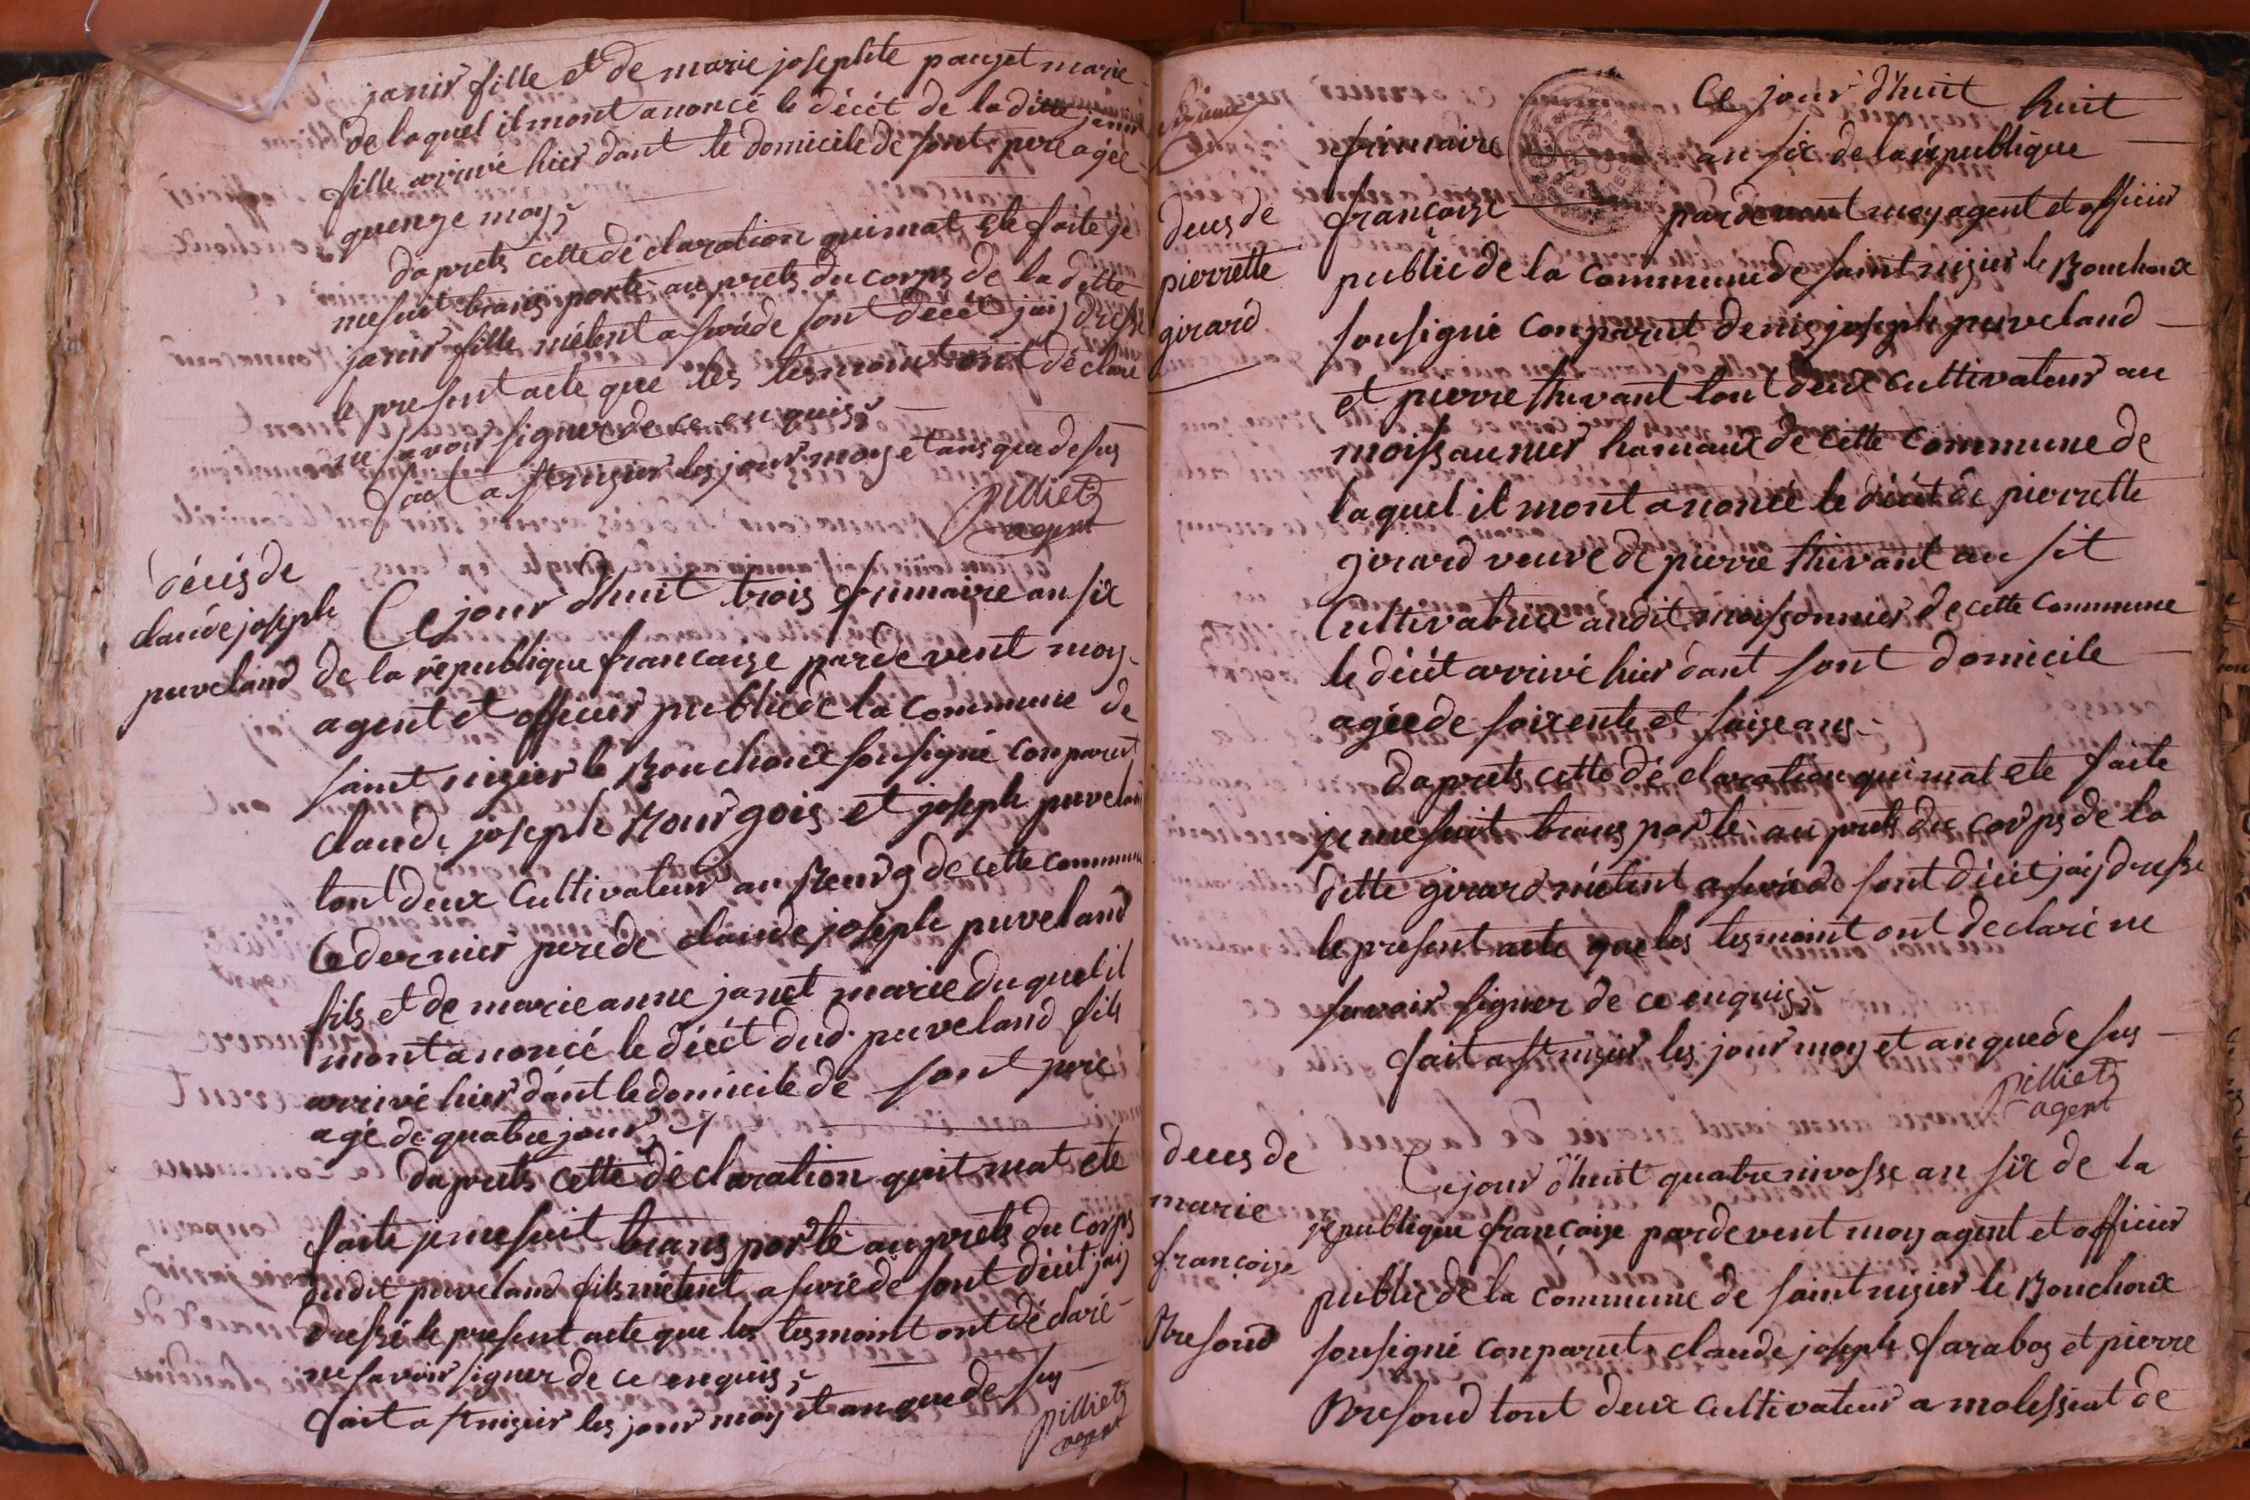 janir fille et de marie josephte pauget marie
de laquel il mont anoncé le décét de la ditte janir
fille arrivé hier dant le domicile de sont pere agée
quenze moy
daprets cette déclaration qui mat ete faite je
me suit transporté au prets du corps de la ditte
janir fille métent asuré de sont décét jaij dressé
le present acte que les tesmoint ont déclaré
ne savoir signer de ce enquis
fait a st nisier les jour moy et ans que desus
pilliet
agent
décés de
claude joseph
puveland
Ce jour dhuit trois frimaire an six
de la republique francaize pardevent moy
agent et officier public de la commune de
saint nisier le Bouchoux sousigné conparut
claude joseph Bourgois et joseph puveland
tout deux Cultivateur au Bourg de cette commune
Ce dernier pere de claude joseph puveland
fils et de marie anne janet marie duquel il
mont anoncé le décét dud. puveland fils
arrivé hier dant le domicile de sont pere
agé de quatre jour
daprets cette déclaration quit mat ete
faite je me suit transporté au prets du corps
dudit puveland fils métent asuré de sont décét jaij
dressé le present acte que les tesmoint ont déclaré
ne savoir signer de ce enquis
fait a st nisier les jour moy et an que desus
pilliet
agent
deces de
pierrette
girard
Ce jour dhuit huit
frimaire an six de la republique
françaize pardevant moy agent et officier
public de la commune de saint nisier le Bouchoux
sousigné conparut denis joseph puveland
et pierre thivant tout deux cultivateur au
moissaunier hamaux de cette commune de
laquel il mont anoncé le décét de pierrette
girard veuve de pierre thivant au sit
Cultivatrice audit moissonnier de cette commune
le décét arrivé hier dant sont domicile
agée de soixente et saize ans
daprets cette déclaration qui mat ete faite
je me suit transporté au prets du corps de la
ditte girard métent asuré de sont décét jaij dressé
le present acte que les tesmoint ont declaré ne
savoir signer de ce enquis
fait a st nisier les jour moy et an que desus
pilliet
agent
deces de
marie
françoize
Bresoud
Ce jour dhuit quatre nivosse an six de la
republique françaize pardevent moy agent et officier
public de la commune de saint nisier le Bouchoux
sousigné conparut claude joseph farabos et pierre
Bresoud tout deux cultivateur a molissiat de